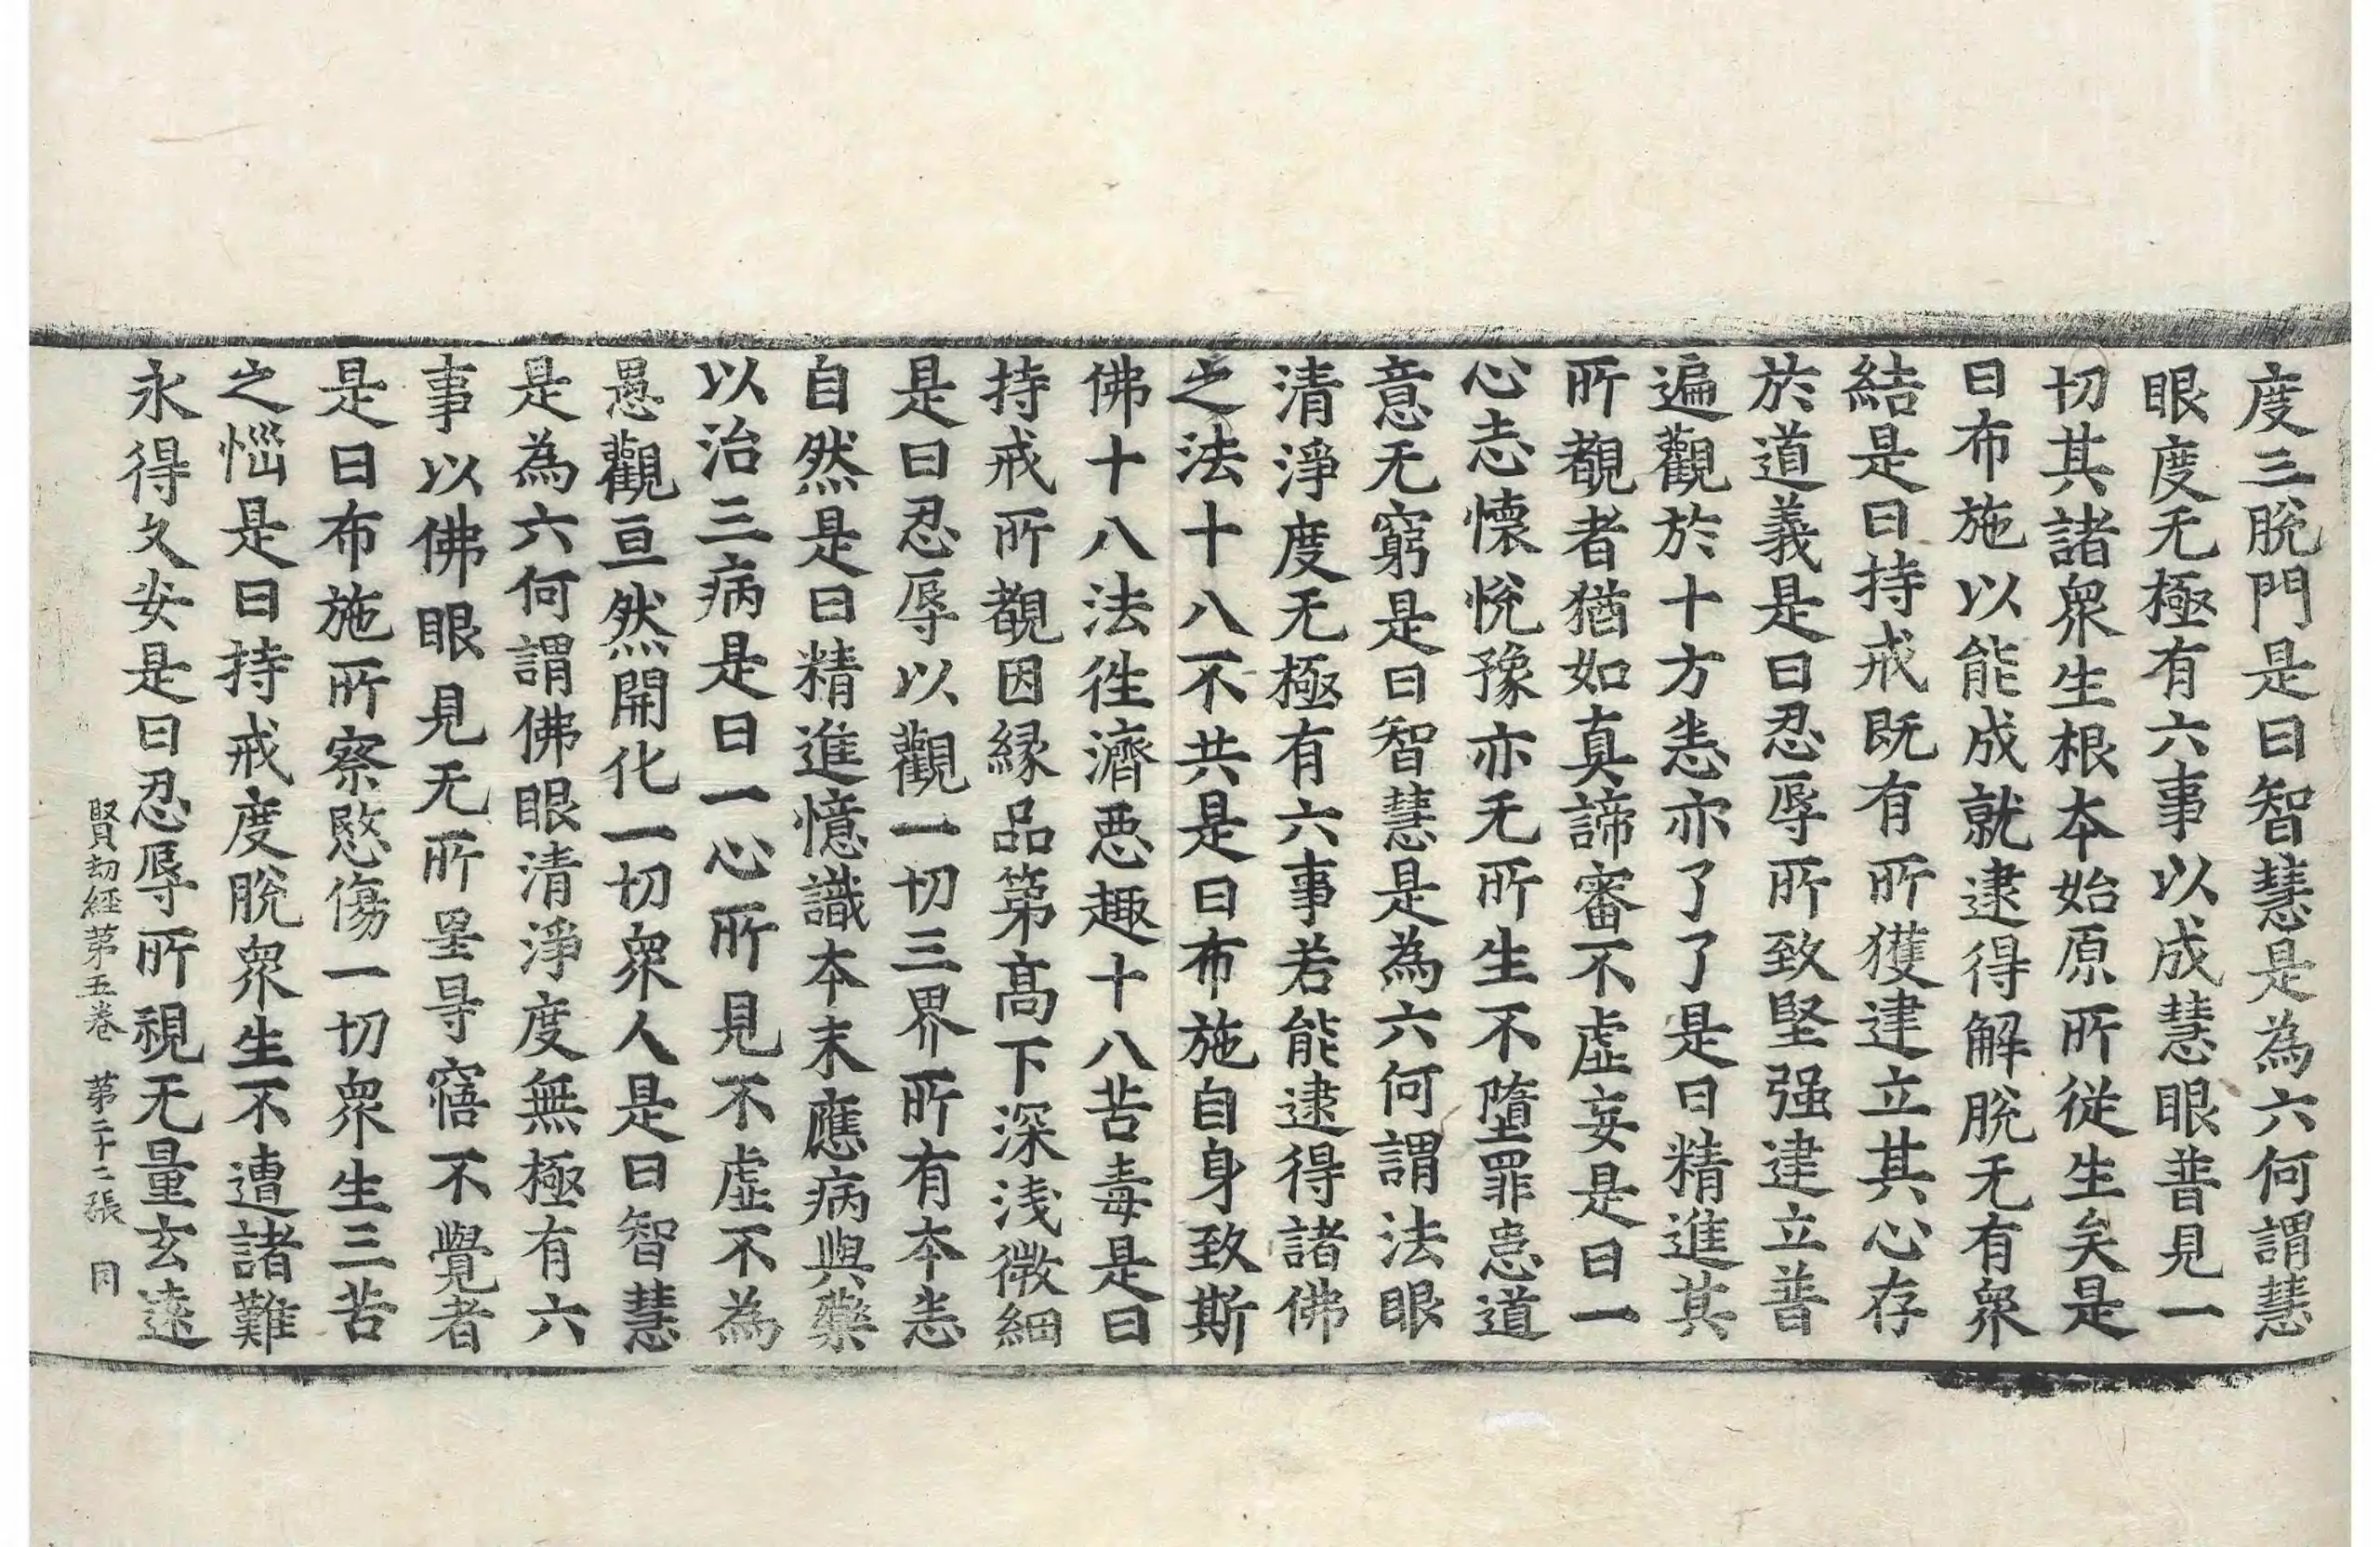 度三脫門是曰智慧是為六何謂慧
眼度无極有六事以成慧眼普見一
切其諸衆生根本始原所從生矣是
曰布施以能成就逮得解脫无有衆
結是曰持戒既有所獲建立其心存
於道義是曰忍辱所致堅强建立普
遍觀於十方恙亦了了是曰精進其
所覩者猶如真諦審不虛妄是曰一
心志懷悅豫亦无所生不墮罪惡道
意无窮是曰智慧是為六何謂法眼
清淨度无極有六事若能逮得諸佛
之法十八不共是曰布施自身致斯
佛十八法徃濟惡趣十八苦毒是曰
持戒所覩因緣品第高下深淺微細
是曰忍辱以觀一切三界所有本恙
自然是曰精進憶識本末應病與藥
以治三病是曰一心所見不虛不為
愚觀亘然開化一切衆人是曰智慧
是為六何謂佛眼清淨度無極有六
事以佛眼見无所罣㝵寤不覺者
是曰布施所察愍傷一切衆生三苦
之惱是曰持戒度脫衆生不遭諸難
永得久安是曰忍辱所視无量玄遠
賢劫經第五卷 第二十二張 同